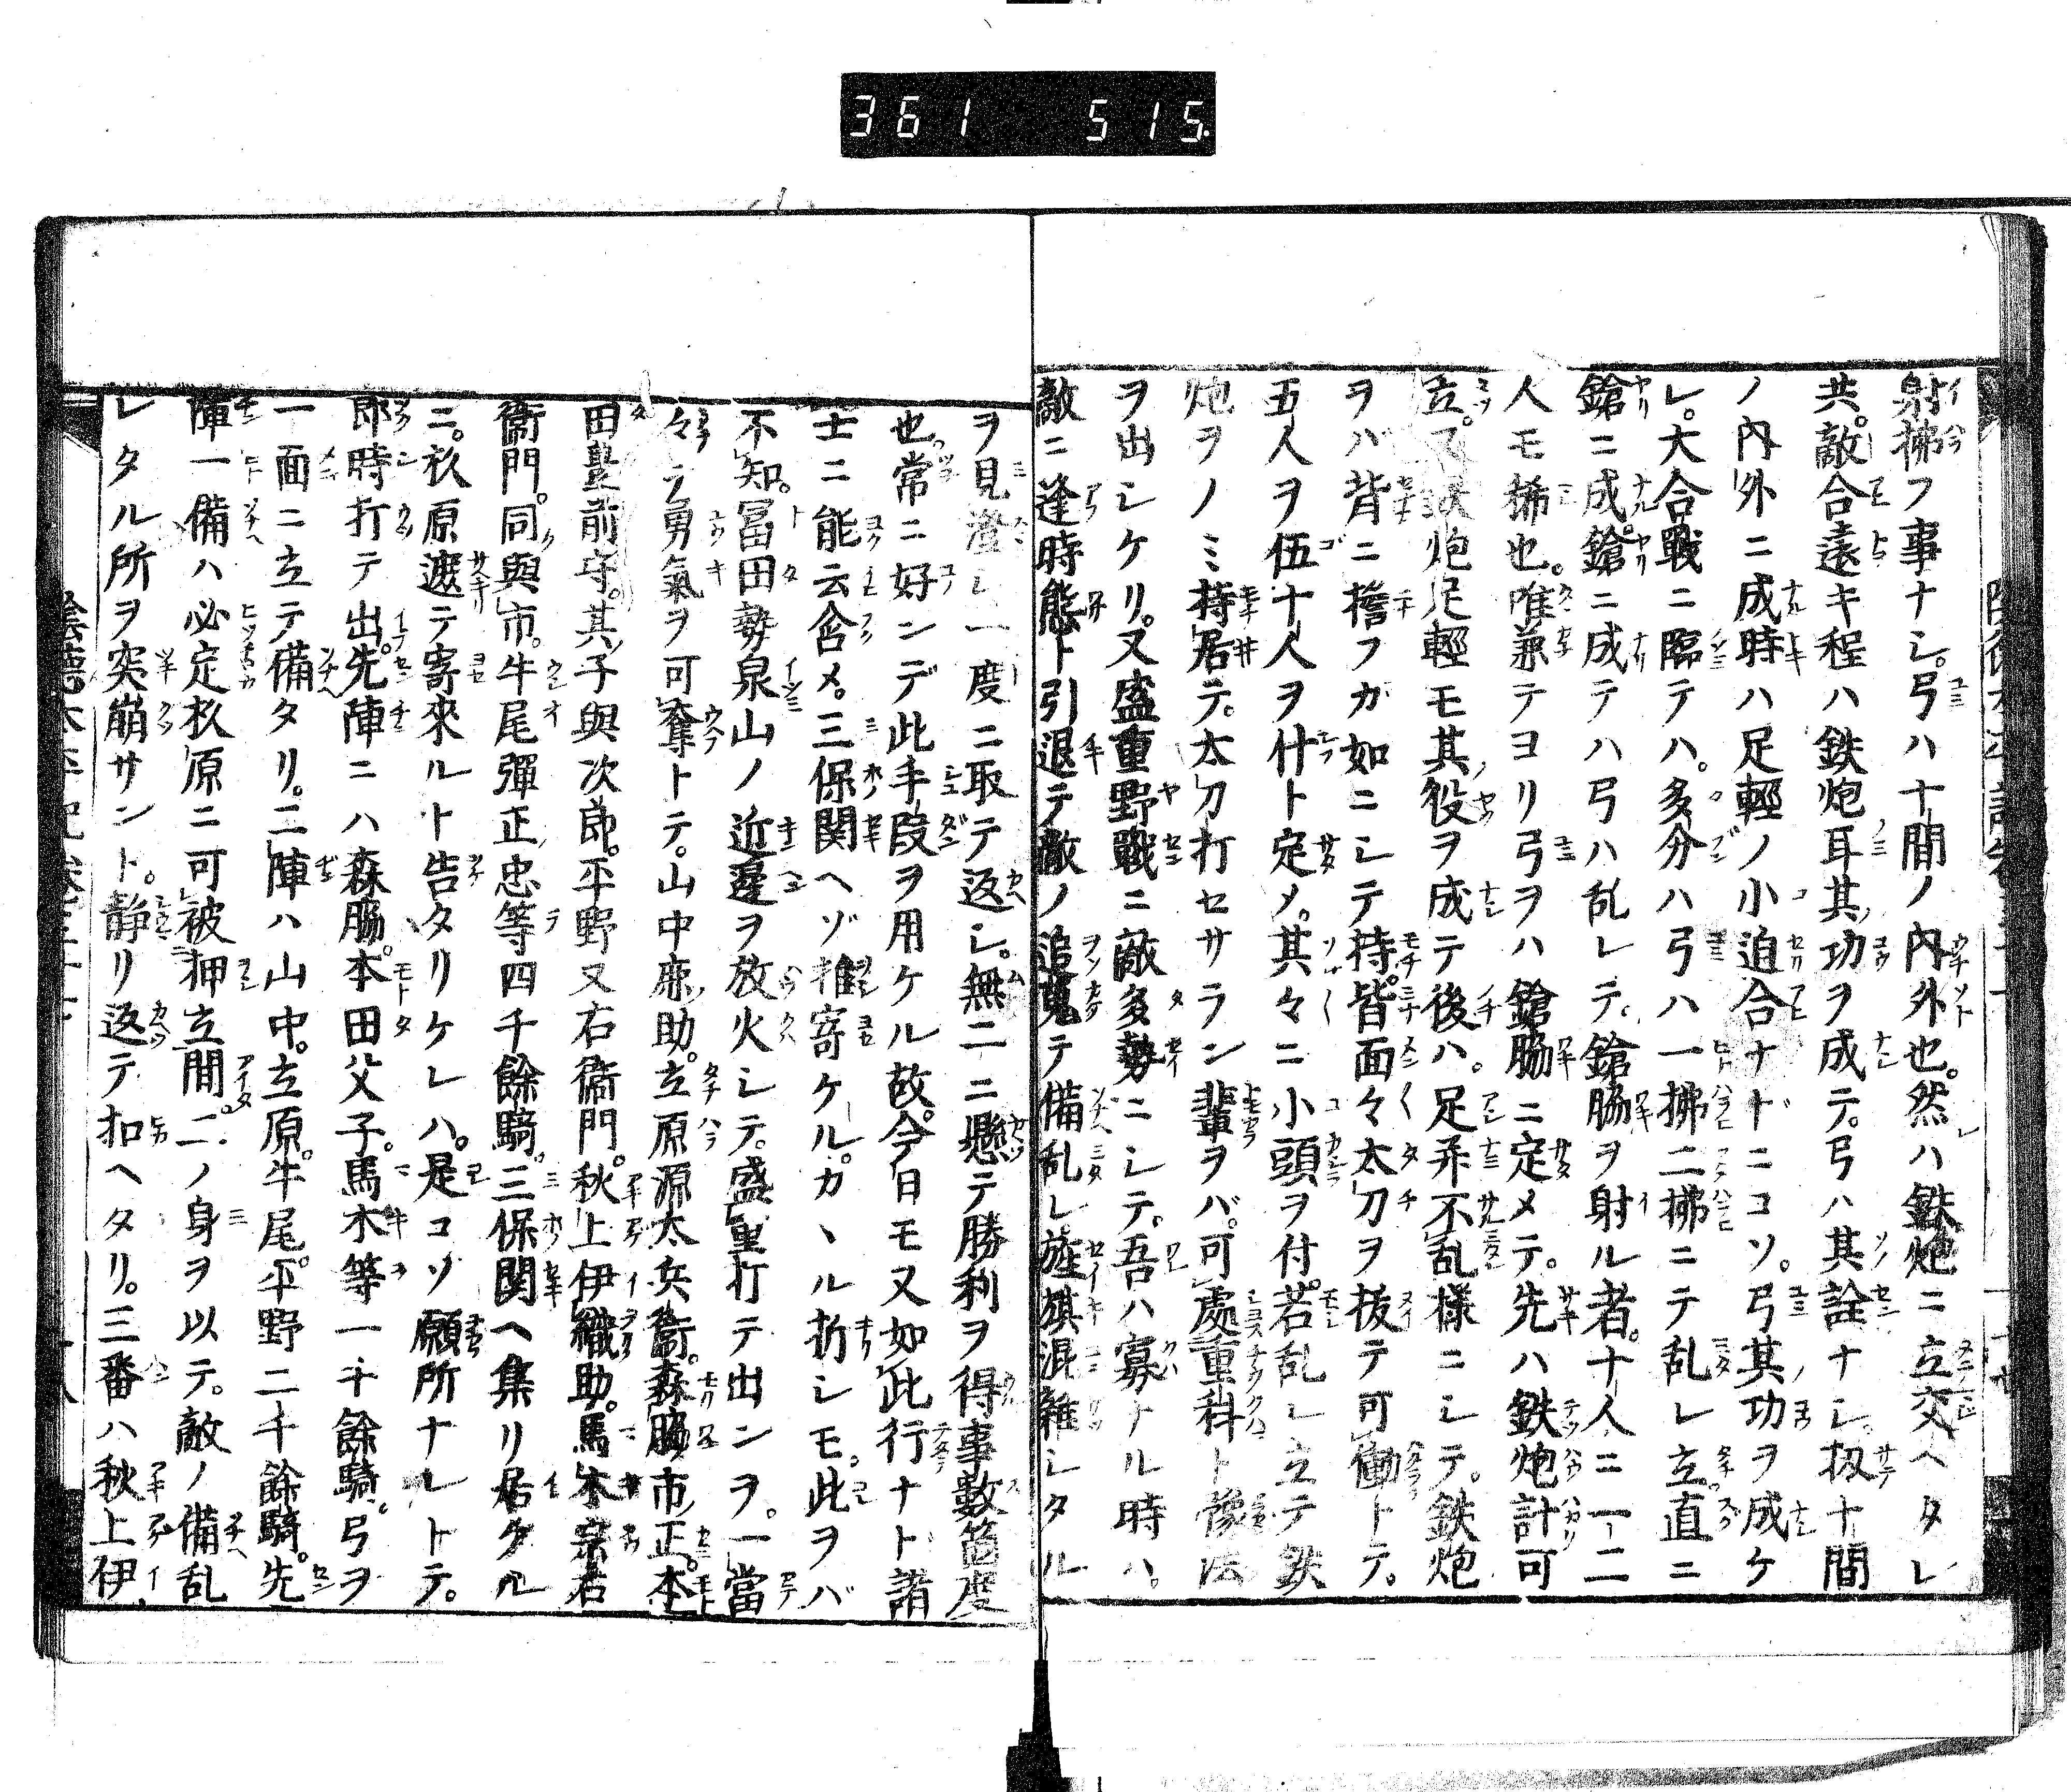 361 515.
射拂フ事ナシ。弓ハ十間ノ内外也。然ハ鉄炮ニ立交ヘタレ
共。敵合遠キ程ハ鉄炮耳其功ヲ成テ。弓ハ其詮ナシ。扨十間
ノ内外ニ成時ハ足輕ノ小迫合ナドニコソ。弓其功ヲ成ケ
レ。大合戰ニ臨テハ。多分ハ弓ハ一拂二拂ニテ乱レ立。直ニ
鎗ニ成。鎗ニ成テハ弓ハ乱レテ。鎗脇ヲ射ル者。十人ニ一二
人モ稀也。唯兼テヨリ弓ヲハ鎗脇ニ定メテ。先ハ鉄炮計可
立。炮足輕モ其役ヲ成テ後ハ。足並不乱樣ニシテ。鉄炮
ヲバ背ニ擔フガ如ニシテ持。皆面々太刀ヲ拔テ可働トテ。
五人ヲ伍十人ヲ什ト定メ。其々ニ小頭ヲ付。若乱レ立テ鉄
炮ヲノミ持居テ。太刀打セサラン輩ヲバ。可處重科ト
ヲ出シケリ。又盛重野戰ニ敵多勢ニシテ。吾ハ寡ナル時ハ。
敵ニ逢時態ト引退テ敵ノ追蒐テ備乱レ旌旗混雜シタル
ヲ見澄シ一度ニ取テ返シ。無二ニ懸テ勝利ヲ得事數箇度
也。常ニ好ンデ此手段ヲ用ケル故。今日モ又如此行ナト諸
士ニ能云含メ。三保関ヘゾ推寄ケル。カヽル折シモ。此ヲバ
不知。冨田勢泉山ノ近邊ヲ放火シテ。盛重打テ出ンヲ。一當
々テ勇氣ヲ可奪トテ。山中鹿助。立原源太兵衞。森脇市正。本
田豊前守。其子與次郎。平野又右衞門。秋上伊織助。馬木宗右
衞門。同與市。牛尾彈正忠等四千餘騎。三保関ヘ集リ居タル
ニ。杉原遮テ寄來ルト告タリケレハ。是コソ願所ナレトテ。
郎時打テ出。先陣ニハ森脇。本田父子。馬木等一千餘騎。弓ヲ
一面ニ立テ備タリ。二陣ハ山中。立原。牛尾。平野二千餘騎。先
陣一備ハ必定杉原ニ可被押立間。二ノ身ヲ以テ。敵ノ備乱
レタル所ヲ突崩サント。静リ返テ扣ヘタリ。三番ハ秋上伊